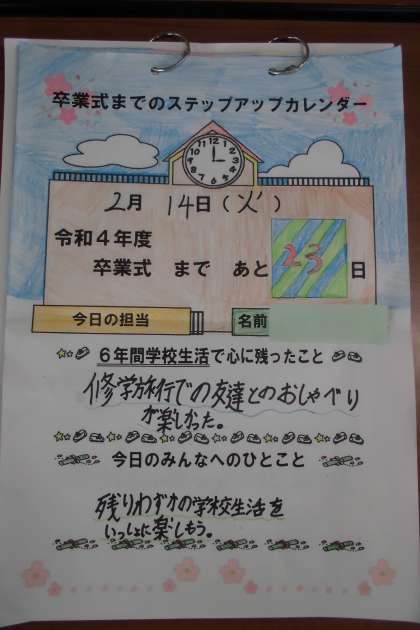 卒業式までのステップアップカレンダー
2月 14日(火)
令和4年度
卒業式 まで あと 23 日
今日の担当 名前
6年間学校生活で心に残ったこと
修学旅行での友達とのおしゃべり
が楽しかった。
今日のみんなへのひとこと
残りわずかの学校生活を
いっしょに楽しもう。